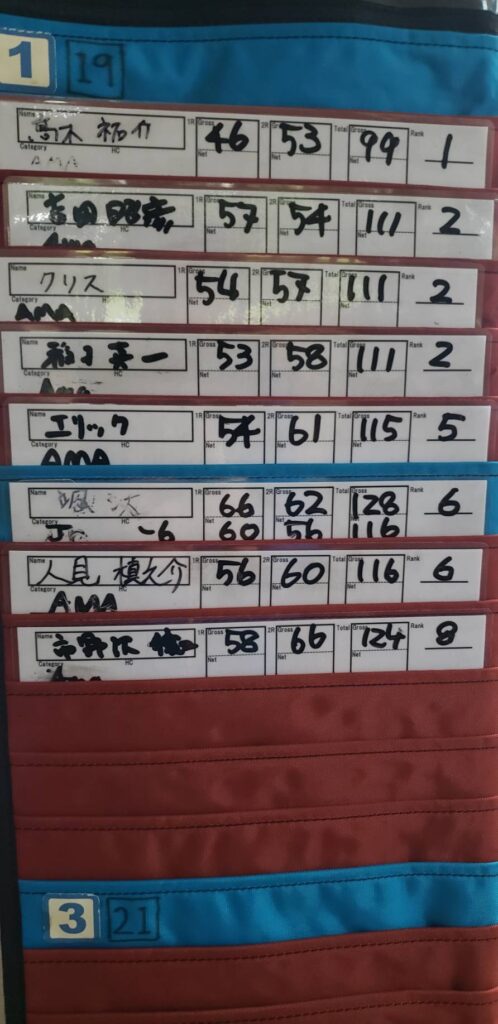 1 19
Name 高木 祐介 1R Gross 46 2R Gross 53 Total Gross 99 Rank 1
AMA HC Net Net Net
Name 吉田 昭彦 1R Gross 57 2R Gross 54 Total Gross 111 Rank 2
Category AMA HC Net Net Net
Name クリス 1R Gross 54 2R Gross 57 Total Gross 111 Rank 2
Category AMA HC Net Net Net
Name 一 1R Gross 53 2R Gross 58 Total Gross 111 Rank 2
Category AMA HC Net Net
Name エリック 1R Gross 54 2R Gross 61 Total Gross 115 Rank 5
Category AMA HC Net Net
Name 1R Gross 66 2R Gross 62 Total Gross 128 Rank 6
Category -6 Net 60 56 116
Name 人見 槙之介 1R Gross 56 2R Gross 60 Total Gross 116 Rank 6
Category AMA HC Net Net
Name 1R Gross 58 2R Gross 66 Total Gross 124 Rank 8
Category HC Net Net
3 21